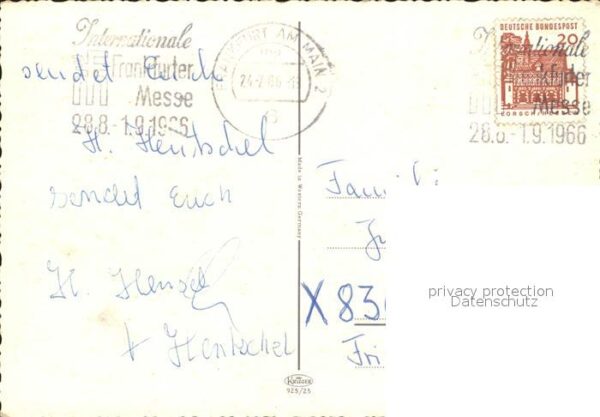 Internationale
Frankfurter
Messe
28.8.-1.9.1966
FRANKFURT AM MAIN 2
DEUTSCHE BUNDESPOST
20
LORSCH
Internationale
Messe
28.8.-1.9.1966
sendet Euch
H. Hentschel
sendet Euch
H. Hensel
+ Hentschel
Made in Western Germany
Krüger
925/25
Famili
X 830
Fri
privacy protection
Datenschutz